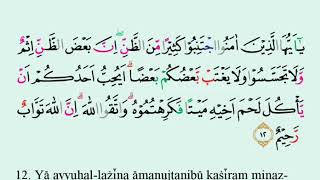 يٰٓاَيُّهَا الَّذِيْنَ اٰمَنُوا اجْتَنِبُوْا كَثِيْرًا مِّنَ الظَّنِّۖ اِنَّ بَعْضَ الظَّنِّ اِثْمٌ
وَّلَا تَجَسَّسُوْا وَلَا يَغْتَبْ بَّعْضُكُمْ بَعْضًاۗ اَيُحِبُّ اَحَدُكُمْ اَنْ
يَّأْكُلَ لَحْمَ اَخِيْهِ مَيْتًا فَكَرِهْتُمُوْهُۗ وَاتَّقُوا اللّٰهَ ۗاِنَّ اللّٰهَ تَوَّابٌ
رَّحِيْمٌ ١٢
12. Yā ayyuhal-lażīna āmanujtanibū kaṡīram minaẓ-